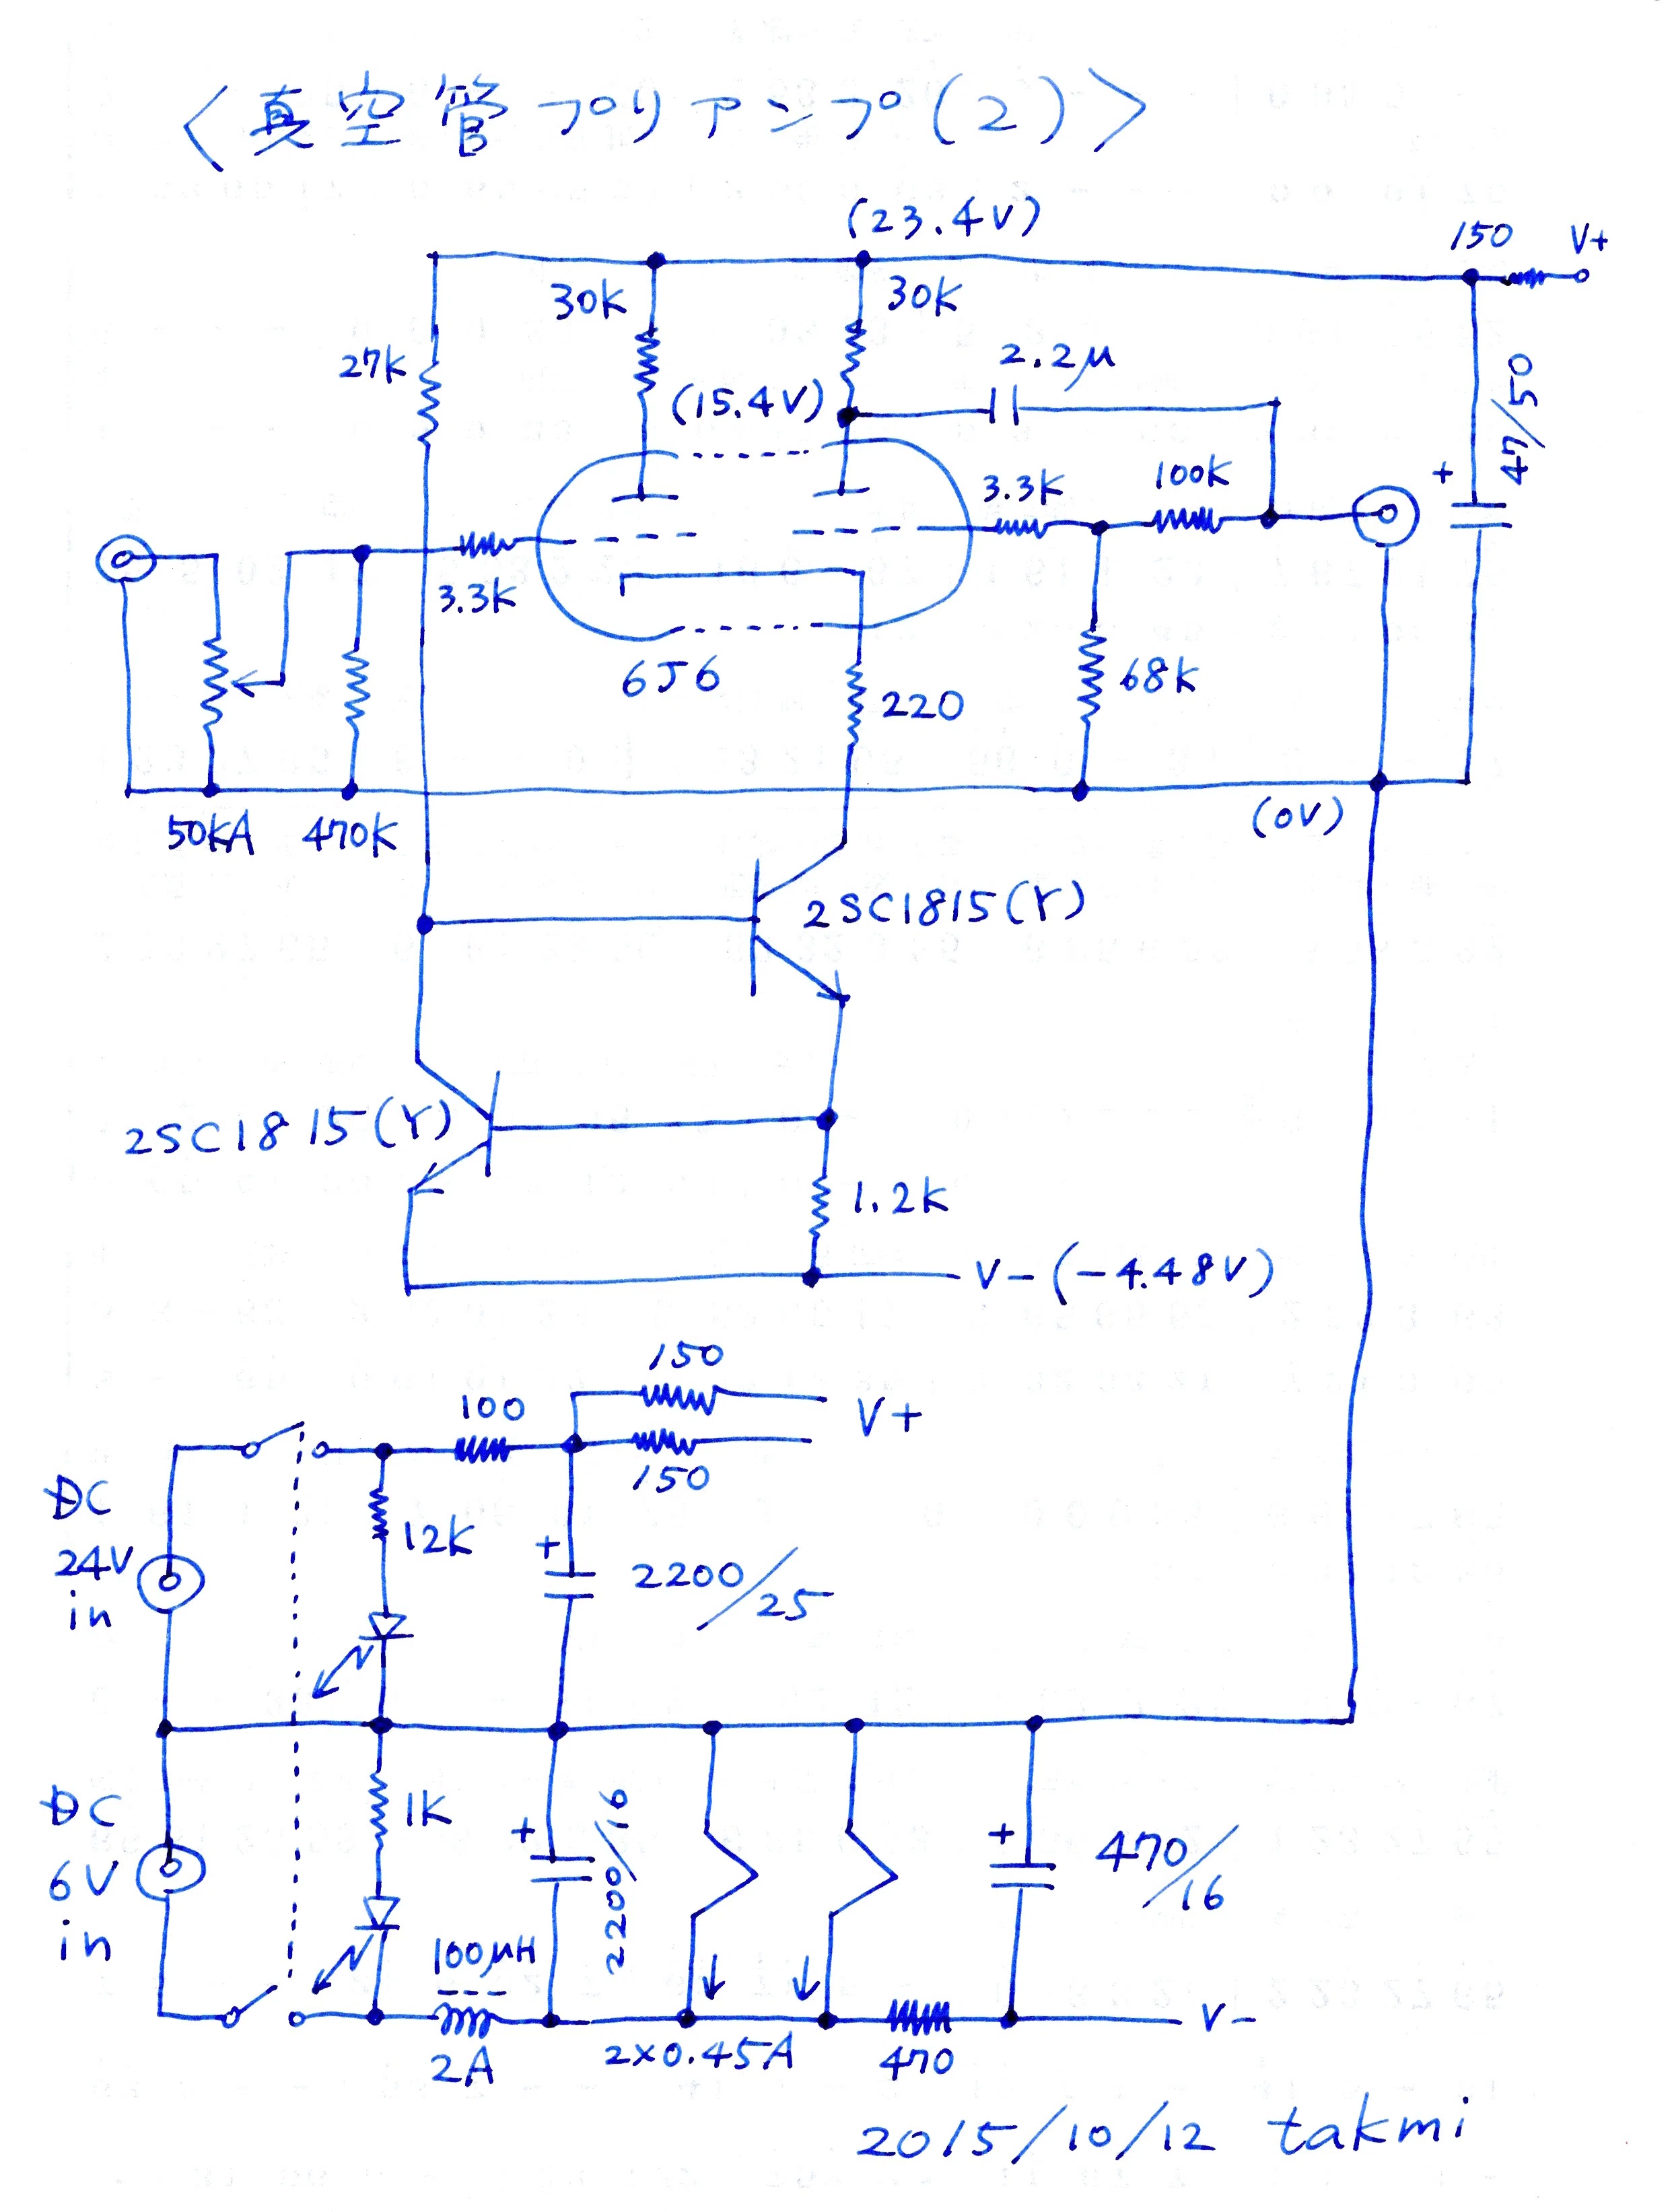 <真空管プリアンプ(2)>
(23.4V)
150
V+
30K
30K
27K
2.2μ
(15.4V)
47/50
+
3.3K
100K
3.3K
6J6
220
68K
50KA
470K
(0V)
2SC1815(Y)
2SC1815(Y)
1.2K
V-(-4.48V)
150
100
V+
150
DC
24V
in
12K
+
2200/25
DC
6V
in
1K
+
2200/16
+
470/16
100μH
2A
2×0.45A
470
V-
2015/10/12 takmi